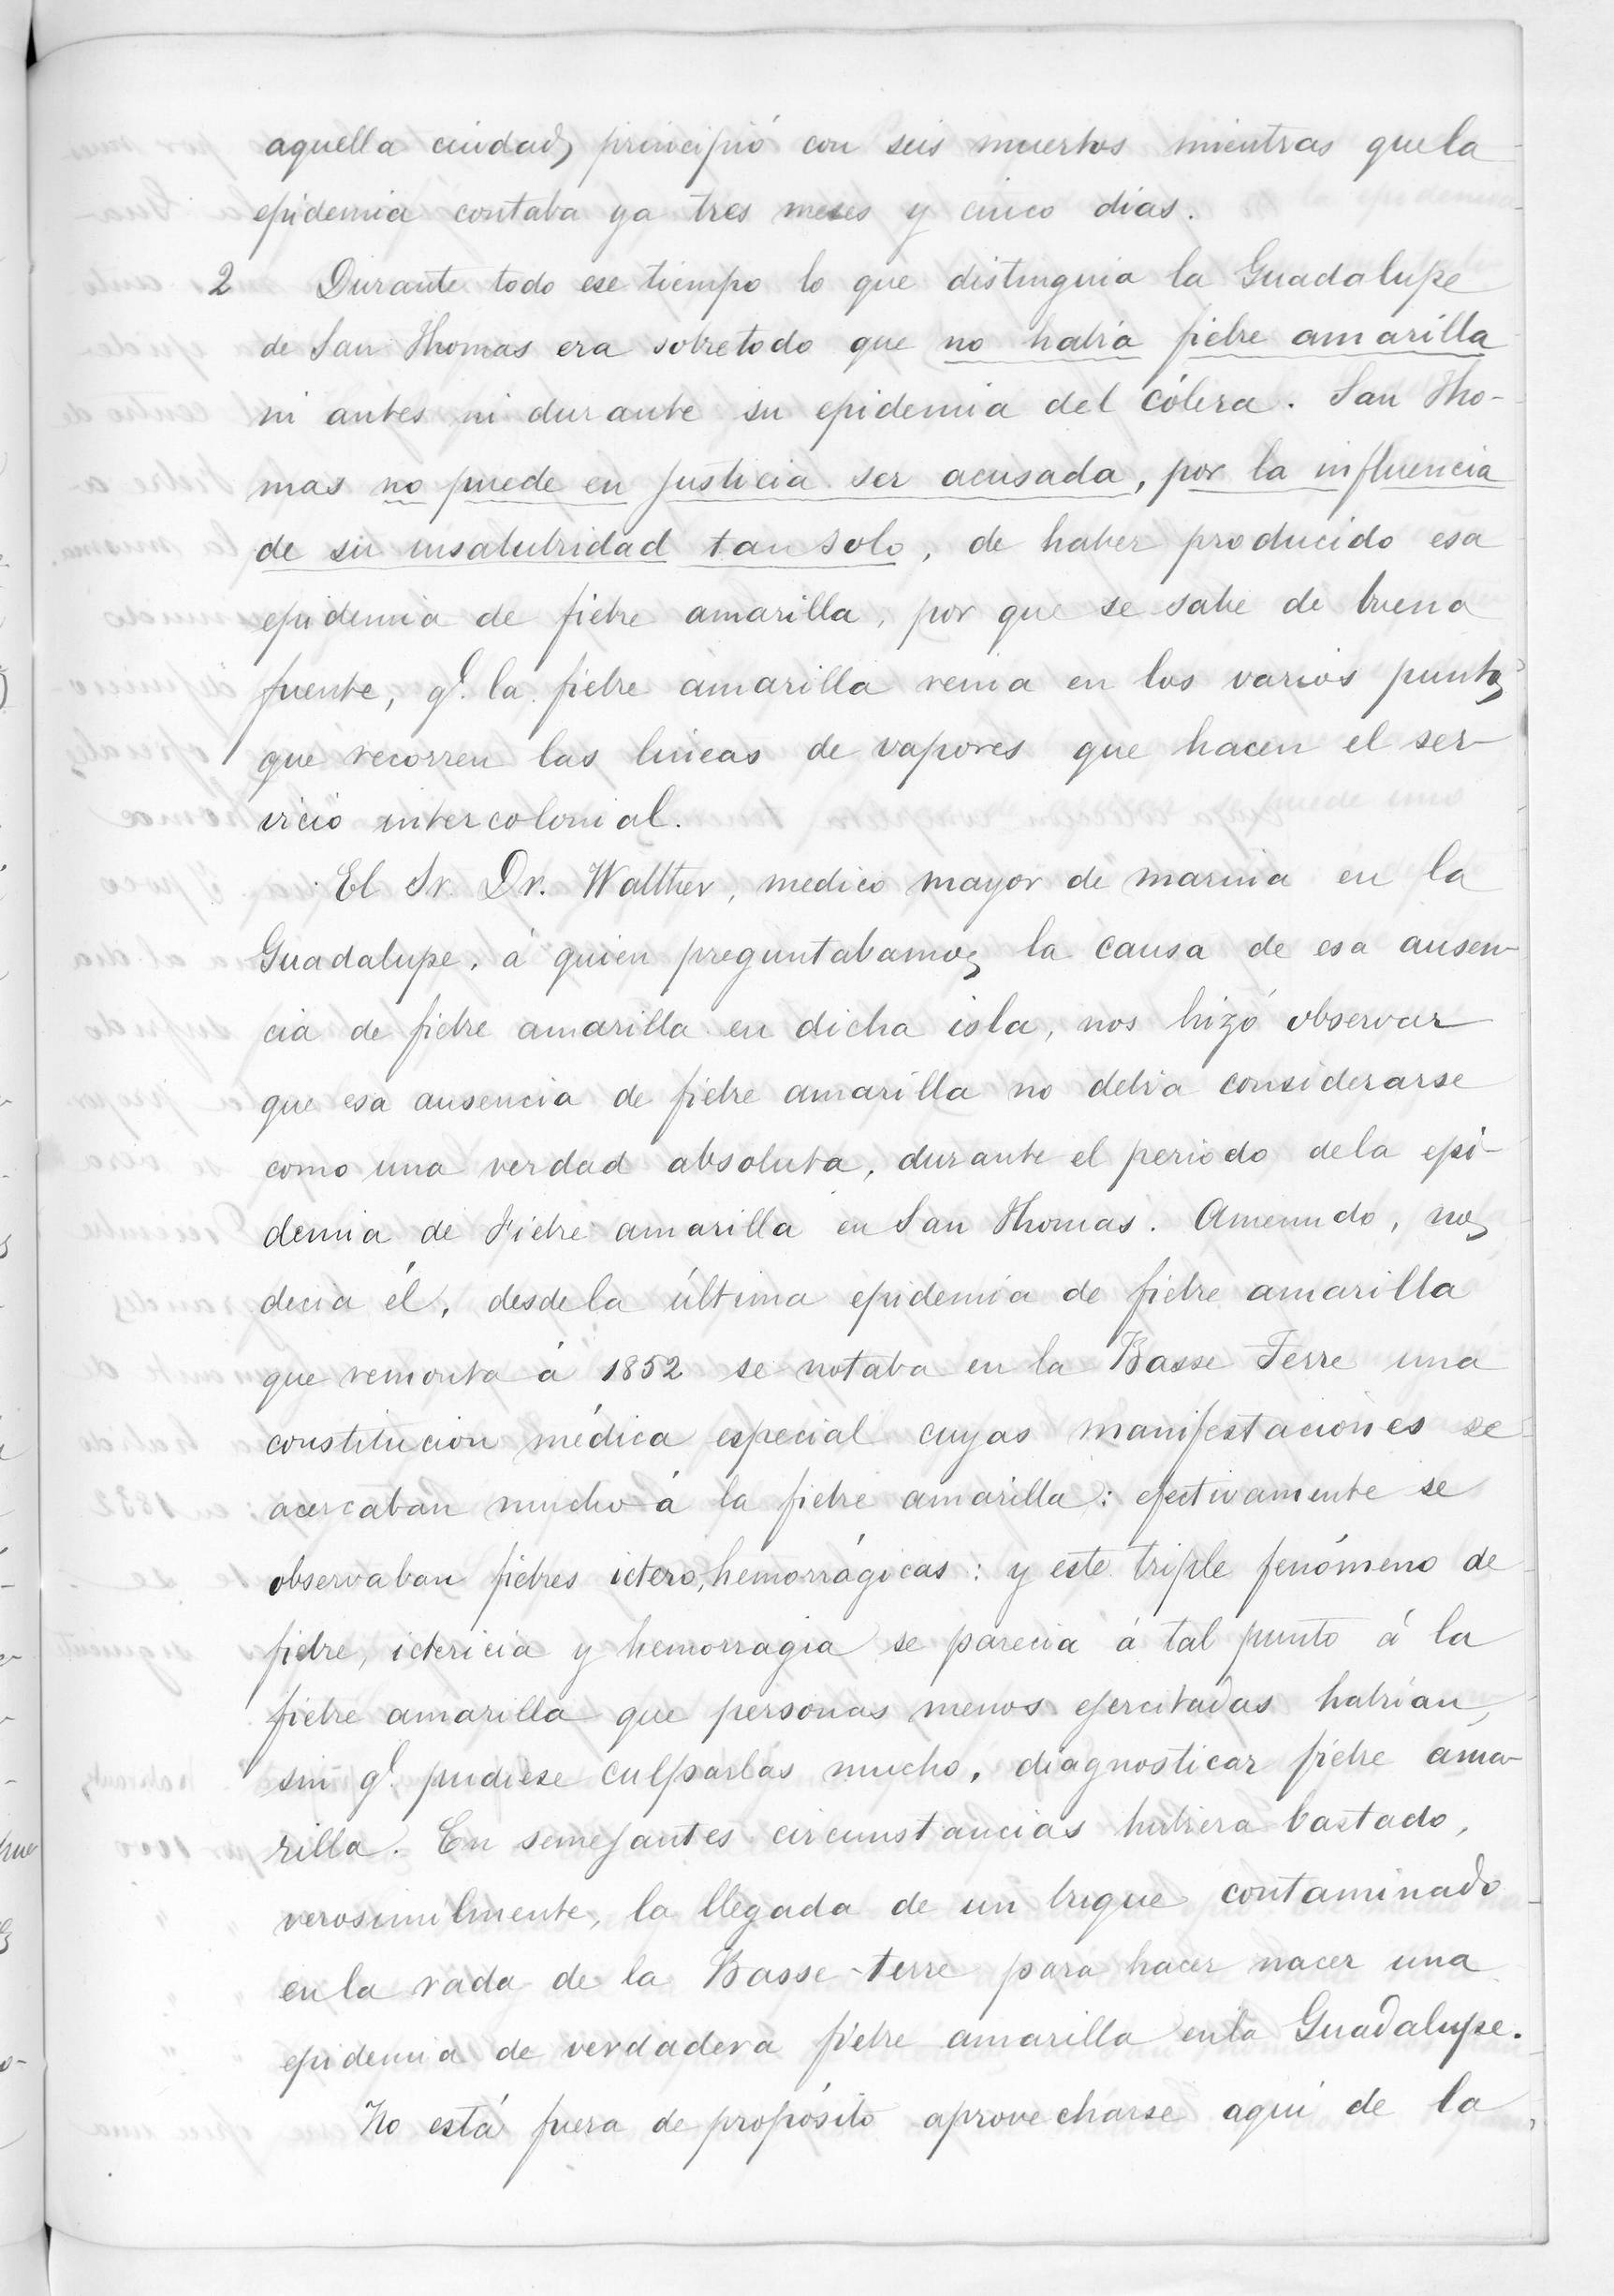 aquella ciudad, principió con seis muertos mientras quela
epidemia contaba ya tres meses y cinco dias.
2 Durante todo ese tiempo lo que distinguia la Guadalupe
de San Thomas era sobretodo que no habia fiebre amarilla
ni antes ni durante su epidemia del cólera. San Tho-
mas no puede en justicia ser acusada, por la influencia
de su insalubridad tan solo, de haber producido esa
epidemia de fiebre amarilla, por que se sabe de buena
fuente, q.l la fiebre amarilla venia en los varios puntos
que recorren las lineas de vapores que hacen el ser-
vicio intercolonial.
El Sr. Dr. Walther, medico mayor de marina en la
Guadalupe, á quien preguntabamos la causa de esa ausen-
cia de fiebre amarilla en dicha isla, nos hizó observar
que esa ausencia de fiebre amarilla no debia considerarse
como una verdad absoluta, durante el periodo dela epi-
demia de Fiebre amarilla en San Thomas. Amenudo, nos
decia él, desdela última epidemia de fiebre amarilla
que remonta á 1852 se notaba en la Basse Terre una
constitucion médica especial cuyas manifestaciones se
acercaban mucho á la fiebre amarilla: efectivamente se
observaban fiebres ictero, hemorrágicas: y este triple fenómeno de
fiebre, ictericia y hemorragia se parecia á tal punto á la
fiebre amarilla que personas menos ejercitadas habrían,
sin q.l pudiese culparlas mucho, diagnosticar fiebre ama-
rilla. En semejantes circunstancias hubiera bastado,
verosimilmente, la llegada de un buque contaminado
enla rada de la Basse-terre para hacer nacer una
epidemia de verdadera fiebre amarilla enla Guadalupe.
No está fuera de propósito aprovecharse aqui de la